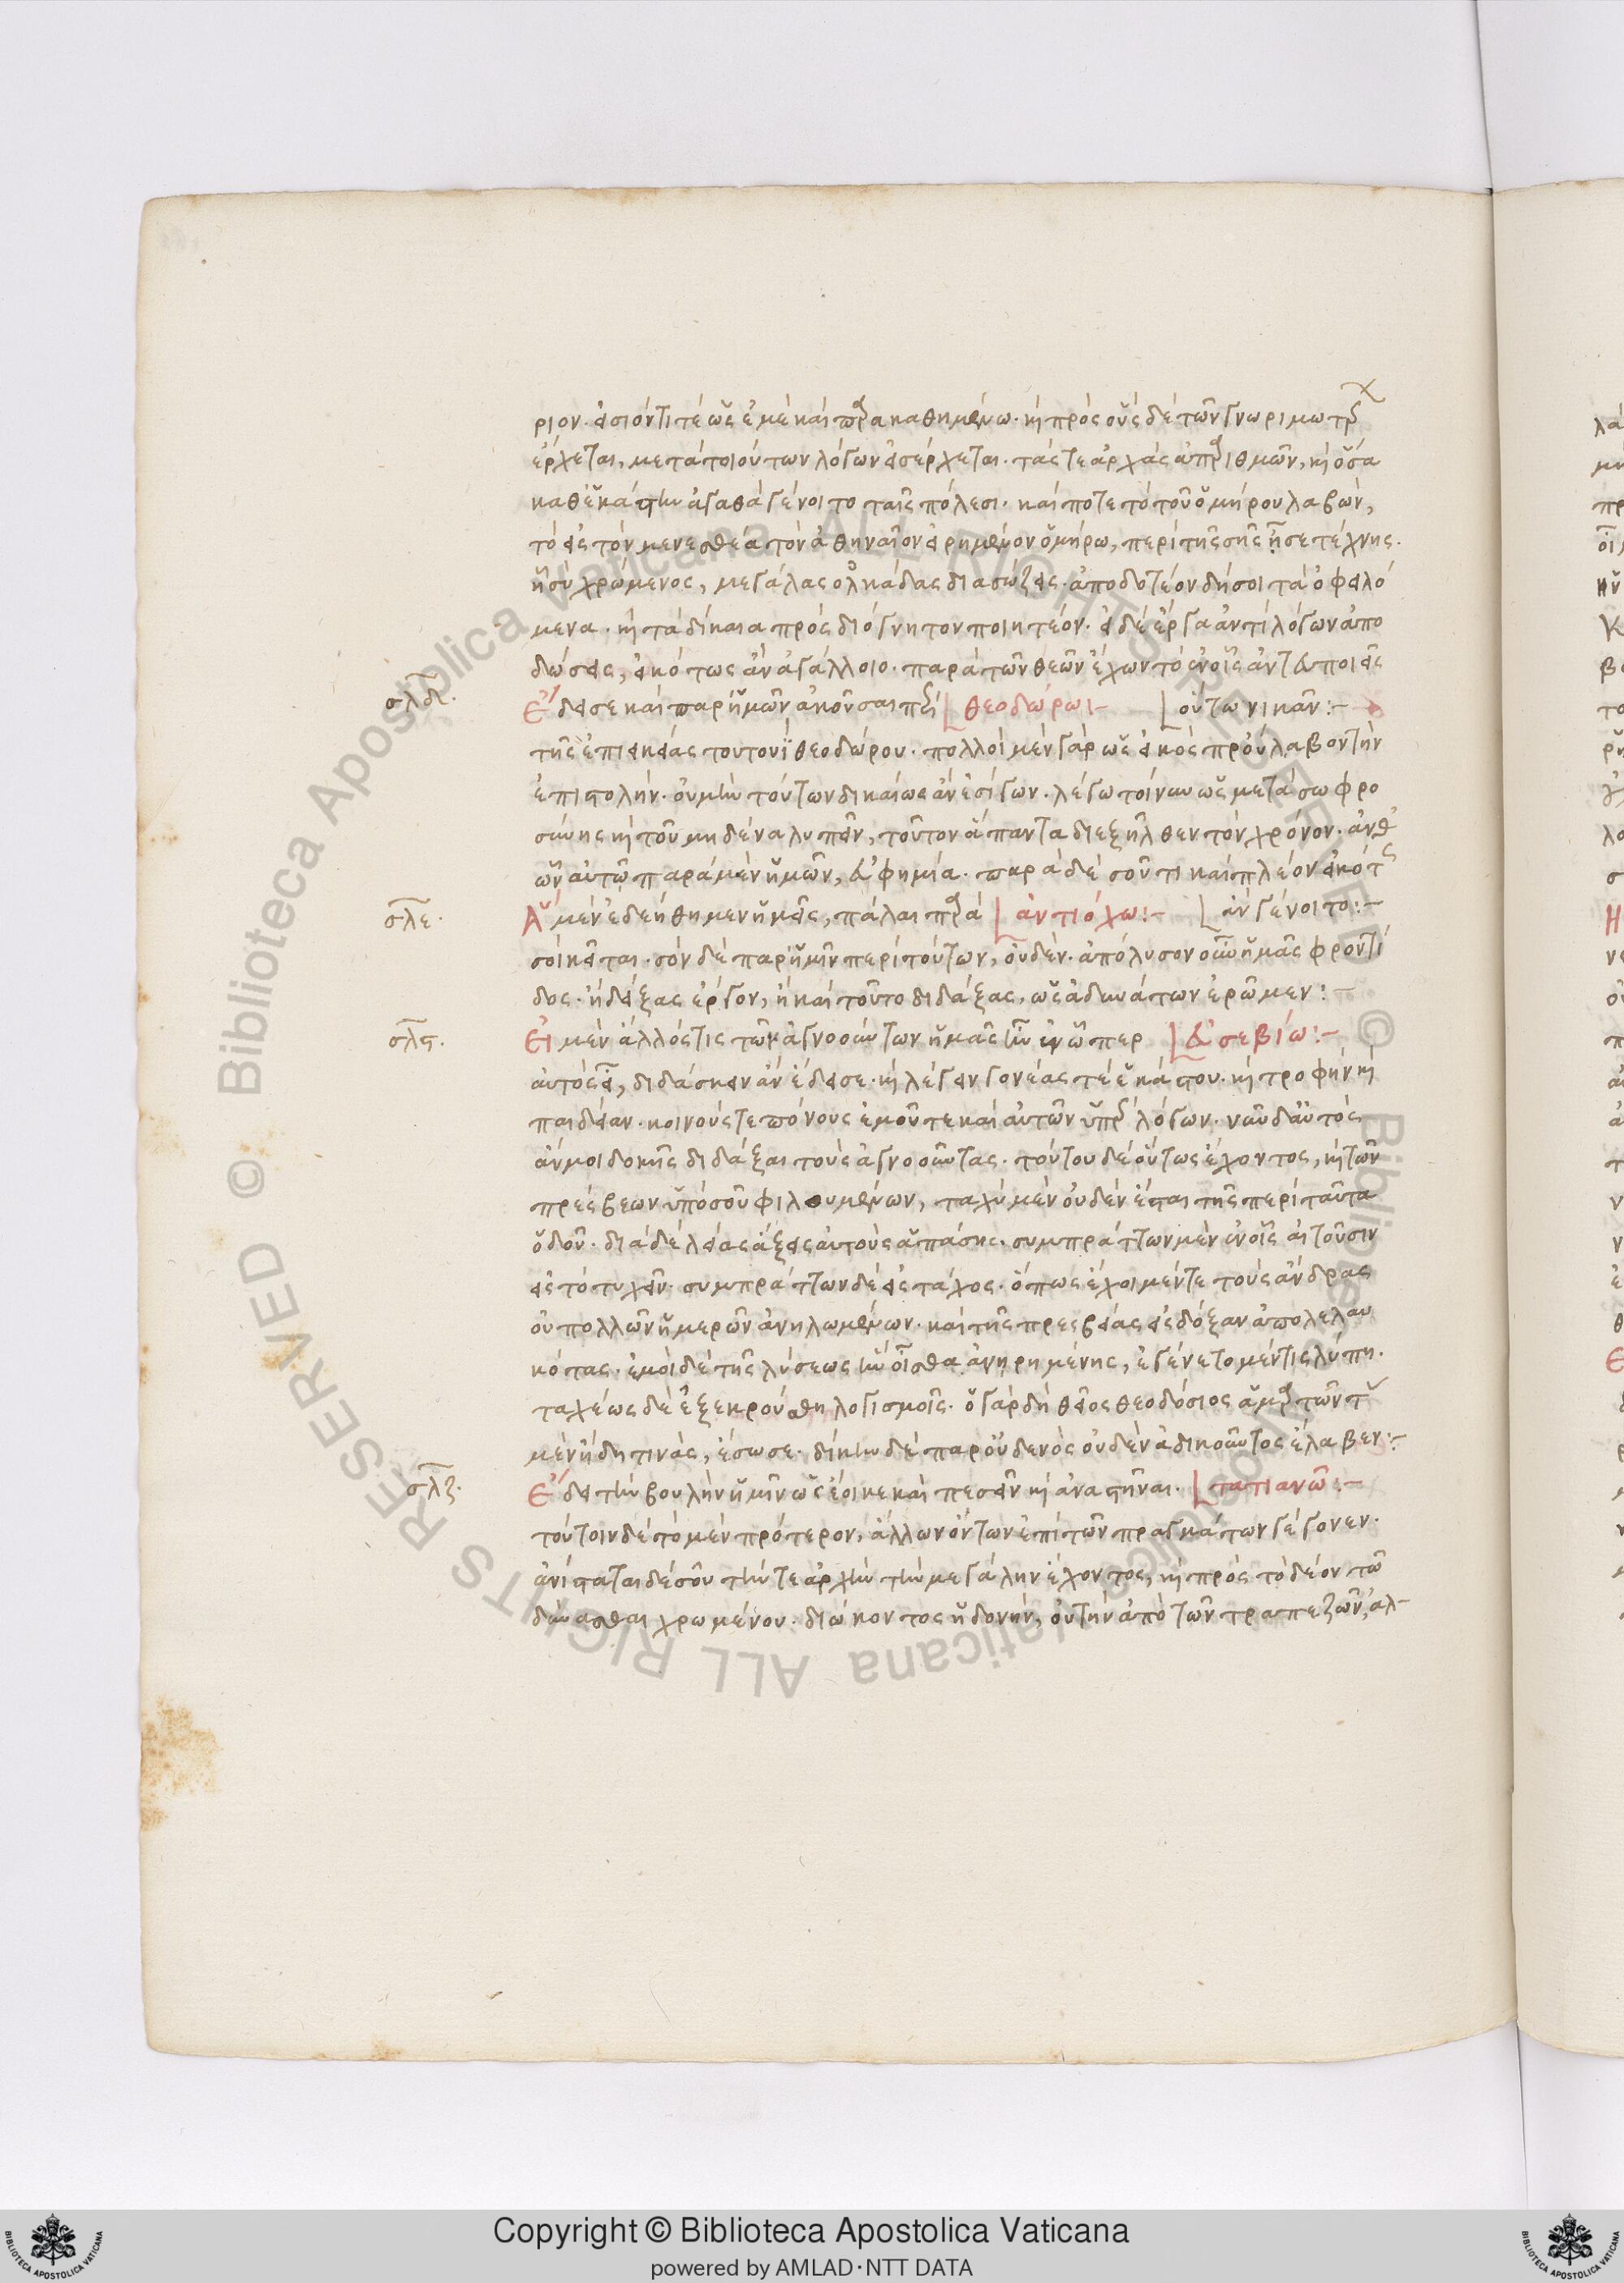 ριον. εἰσιόντι τέ ὡς ἐμὲ καὶ παρακαθημένω. κὶ πρὸς οὓς δὲ τῶν γνωρίμων
ἔρχεται, μετὰ τοιούτων λόγων εἰσέρχεται. τάς τε ἀρχὰς ἀπαριθμῶν, κὶ ὅσα
καθ' ἑκάστην ἀγαθὰ γένοιτο ταῖς πόλεσι. καί ποτε τὸ τοῦ ὁμήρου λαβών,
τὸ εἰς τὸν μενεσθέα τὸν ἀθηναῖον εἰρημένον ὁμήρω, περὶ τῆς σῆς ᾖσε τέχνης.
ᾗ σὺ χρώμενος, μεγάλας ὁλκάδας διασώζεις. ἀποδοτέον δή σοι τὰ ὀφειλό
μενα. κὶ τὰ δίκαια πρὸς διόγνητον ποιητέον. εἰ δὲ ἔργα ἀντὶ λόγων ἀπο
δώσεις, εἰκότως ἂν ἀγάλλοιο. παρὰ τῶν θεῶν ἔχων τὸ ἐν οἷς ἀντευποιεῖς
σλδ. Ἔδει σε καὶ παρ' ἡμῶν ἀκοῦσαι περὶ θεοδώρωι- οὕτω νικᾶν:-
τῆς ἐπιεικείας τουτουῒ θεοδώρου. πολλοὶ μὲν γὰρ ὡς εἰκὸς προὔλαβον τὴν
ἐπιστολήν. οὐ μὴν τούτων δικαίως ἂν ἐσίγων. λέγω τοίνυν ὡς μετὰ σωφρο
σύνης κὶ τοῦ μηδένα λυπεῖν, τοῦτον ἅπαντα διεξῆλθεν τὸν χρόνον. ἀνθ'
ὧν αὐτῶ παρὰ μὲν ἡμῶν, εὐφημία. παρὰ δὲ σοῦ τι καὶ πλέον εἰκότως
σλε. Ἃ μὲν ἐδεήθημεν ἡμεῖς, πάλαι παρὰ ἀντιόχω:- ἂν γένοιτο:-
σοὶ κεῖται. σὸν δὲ παρ' ἡμῖν περὶ τούτων, οὐδέν. ἀπόλυσον οὖν ἡμᾶς φροντί
δος. ἢ δείξας ἔργον, ἢ καὶ τοῦτο διδάξας, ὡς ἀδυνάτων ἐρῶμεν:
σλς. Εἰ μὲν ἄλλός τις τῶν ἀγνοούντων ἡμᾶς ἦν ἐν ὧπερ εὐσεβίω:-
αὐτὸς εἶ, διδάσκειν ἂν ἔδει σε. κὶ λέγειν γονέας τὲ ἑκάστου. κὶ τροφὴν κὶ
παιδείαν. κοινούς τε πόνους ἐμοῦ τε καὶ αὐτῶν ὑπὲρ λόγων. νῦν δ' αὐτὸς
ἄν μοι δοκῇς διδάξαι τοὺς ἀγνοοῦντας. τούτου δὲ οὕτως ἔχοντος, κὶ τῶν
πρέσβεων ὑπὸ σοῦ φιλουμένων, ταχὺ μὲν οὐδὲν ἔσται τῆς περὶ ταῦτα
ὁδοῦ. διὰ δὲ λείας ἄξεις αὐτοὺς ἁπάσης. συμπράττων μὲν ἐν οἷς αἰτοῦσιν
εἰς τὸ τυχεῖν. συμπράττων δὲ εἰς τάχος. ὅπως ἔχοιμέν τε τοὺς ἄνδρας
οὐ πολλῶν ἡμερῶν ἀνηλωμένων. καὶ τῆς πρεσβείας εἰς δόξαν ἀπολελαυ
κότας. ἐμοὶ δὲ τῆς λύσεως ἣν οἶσθα ἀνῃρημένης, ἐγένετο μέν τις λύπη.
ταχέως δὲ ἐξεκρούσθη λογισμοῖς. ὁ γὰρ δὴ θεῖος θεοδόσιος ἁμαρτῶν τ
μὲν ἤδη τινὰς, ἔσωσε. δίκην δὲ παρ' οὐδενὸς οὐδὲν ἀδικοῦντος ἔλαβεν:-
σλζ. Ἔδει τὴν βουλὴν ἡμῖν ὡς ἔοικε καὶ πεσεῖν κὶ ἀναστῆναι. τατιανῶ:-
τούτοιν δὲ τὸ μὲν πρότερον, ἄλλων ὄντων ἐπὶ τῶν πραγμάτων γέγονεν.
ἀνίσταται δὲ σοῦ τήν τε ἀρχὴν τὴν μεγάλην ἔχοντος, κὶ πρὸς τὸ δέον τῶ
δύνασθαι χρωμένου. διώκοντος ἡδονήν, οὐ τὴν ἀπὸ τῶν τραπεζῶν, ἀλ-
Copyright © Biblioteca Apostolica Vaticana
powered by AMLAD·NTT DATA